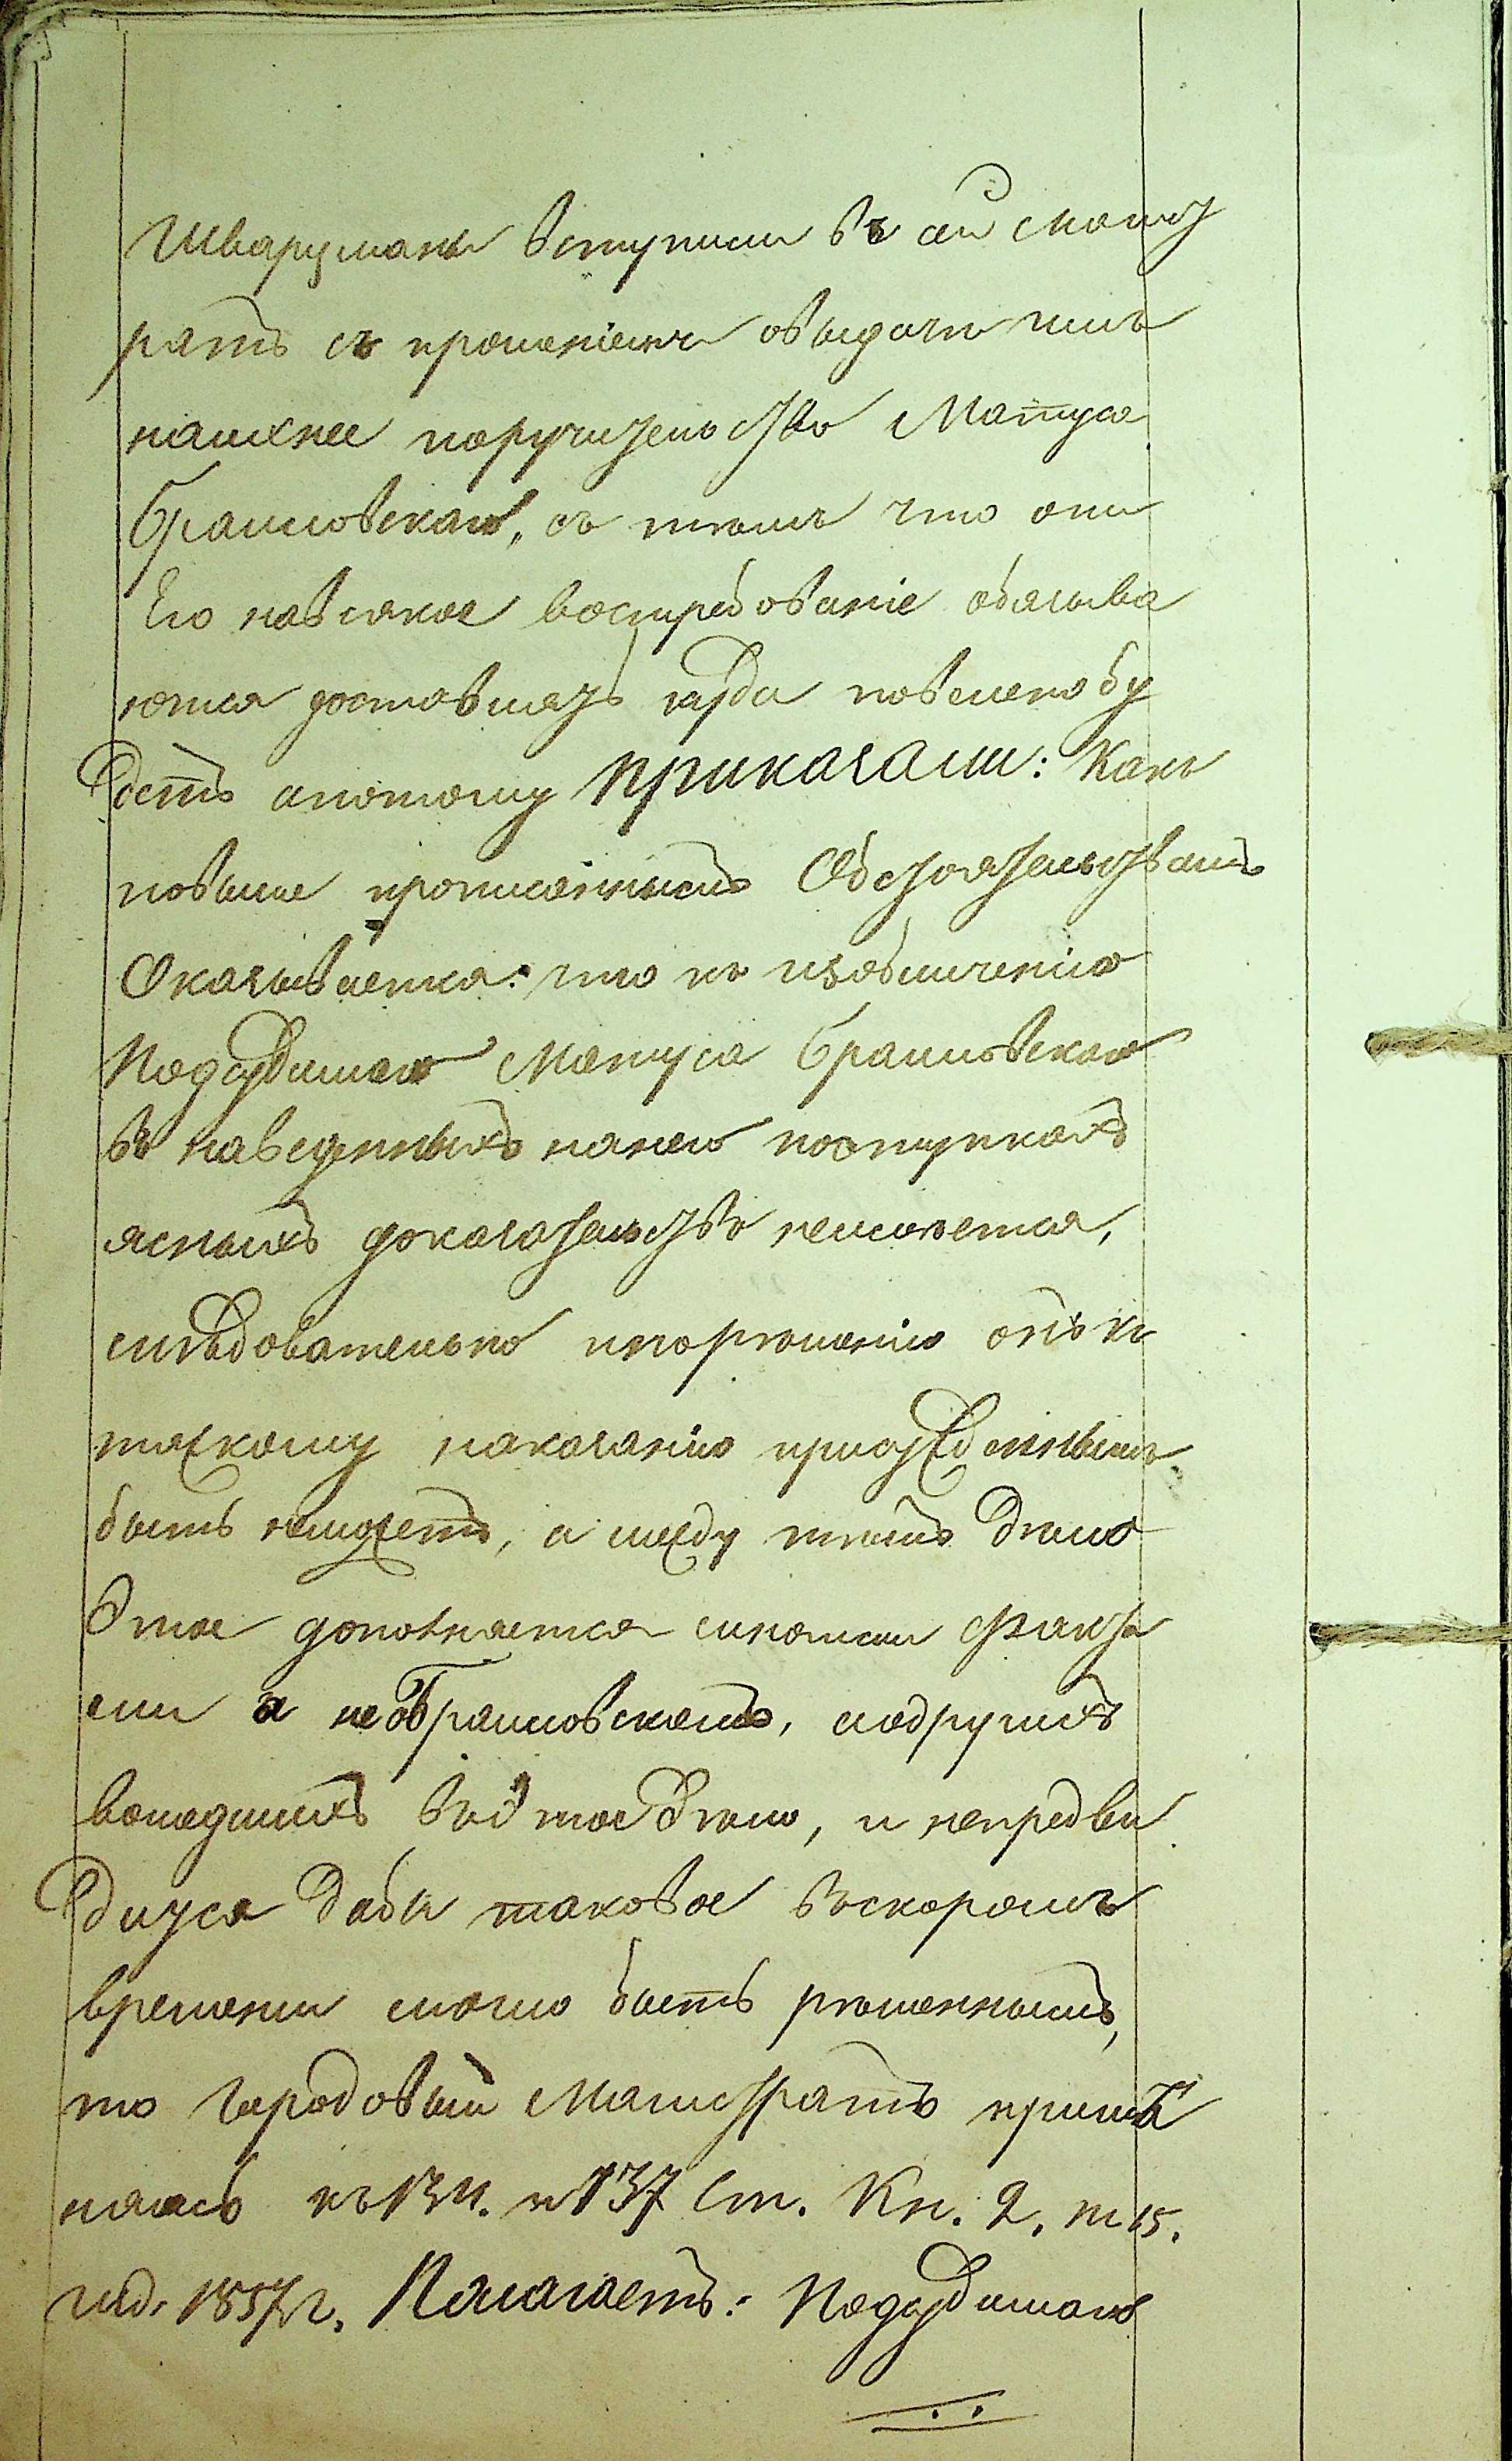 Шварцмани вступили въ сей Маги
ратъ съ прошеніемъ овыдачи имъ
наихнее поручительство Матуса
Браиловскаго, съ темъ что они
Его навсякое востребованіе обязыва
ются доставлять куда повелено бу
детъ апотому приказали: Какъ
повыше прописаннымъ Обстоятельствамъ
Оказывается: что къ изобличенію
Подсудимаго Матуса Браиловскаго
въ наведенныхъ нанего поступкахъ
ясныхъ доказательствъ неимеется,
слѣдовательно ипорѣшенію онъ къ
тяжкому наказанію присужденнымъ
быть неможетъ, а между тѣмъ дѣло
Этое дополняется иными фактa
ми а не о Браиловскомъ, иодругихъ
вошедшихъ въ этое дѣло, и непредви
дится дабы таковое вскоромъ
времени могло быть рѣшеннымъ,
то Городовый Магистратъ примѣ
няясь къ 134. и 137 Ст. Кн. 2. т 15.
изд. 1857 г. Полагаетъ: Подсудимаго